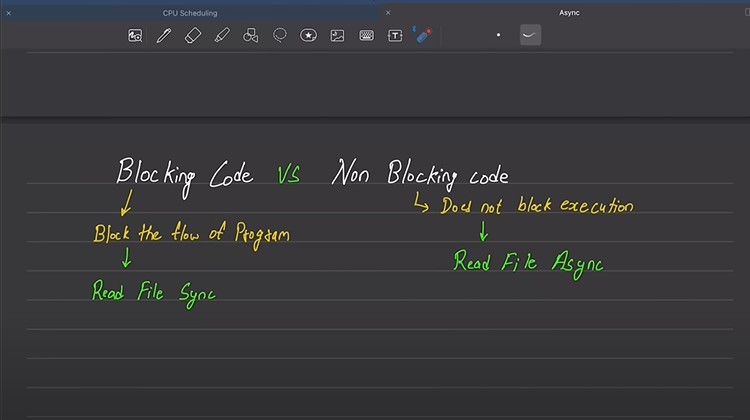 CPU Scheduling
Async
Blocking Code VS Non Blocking code
Block the flow of Program
Read File Sync
Does not block execution
Read File Async